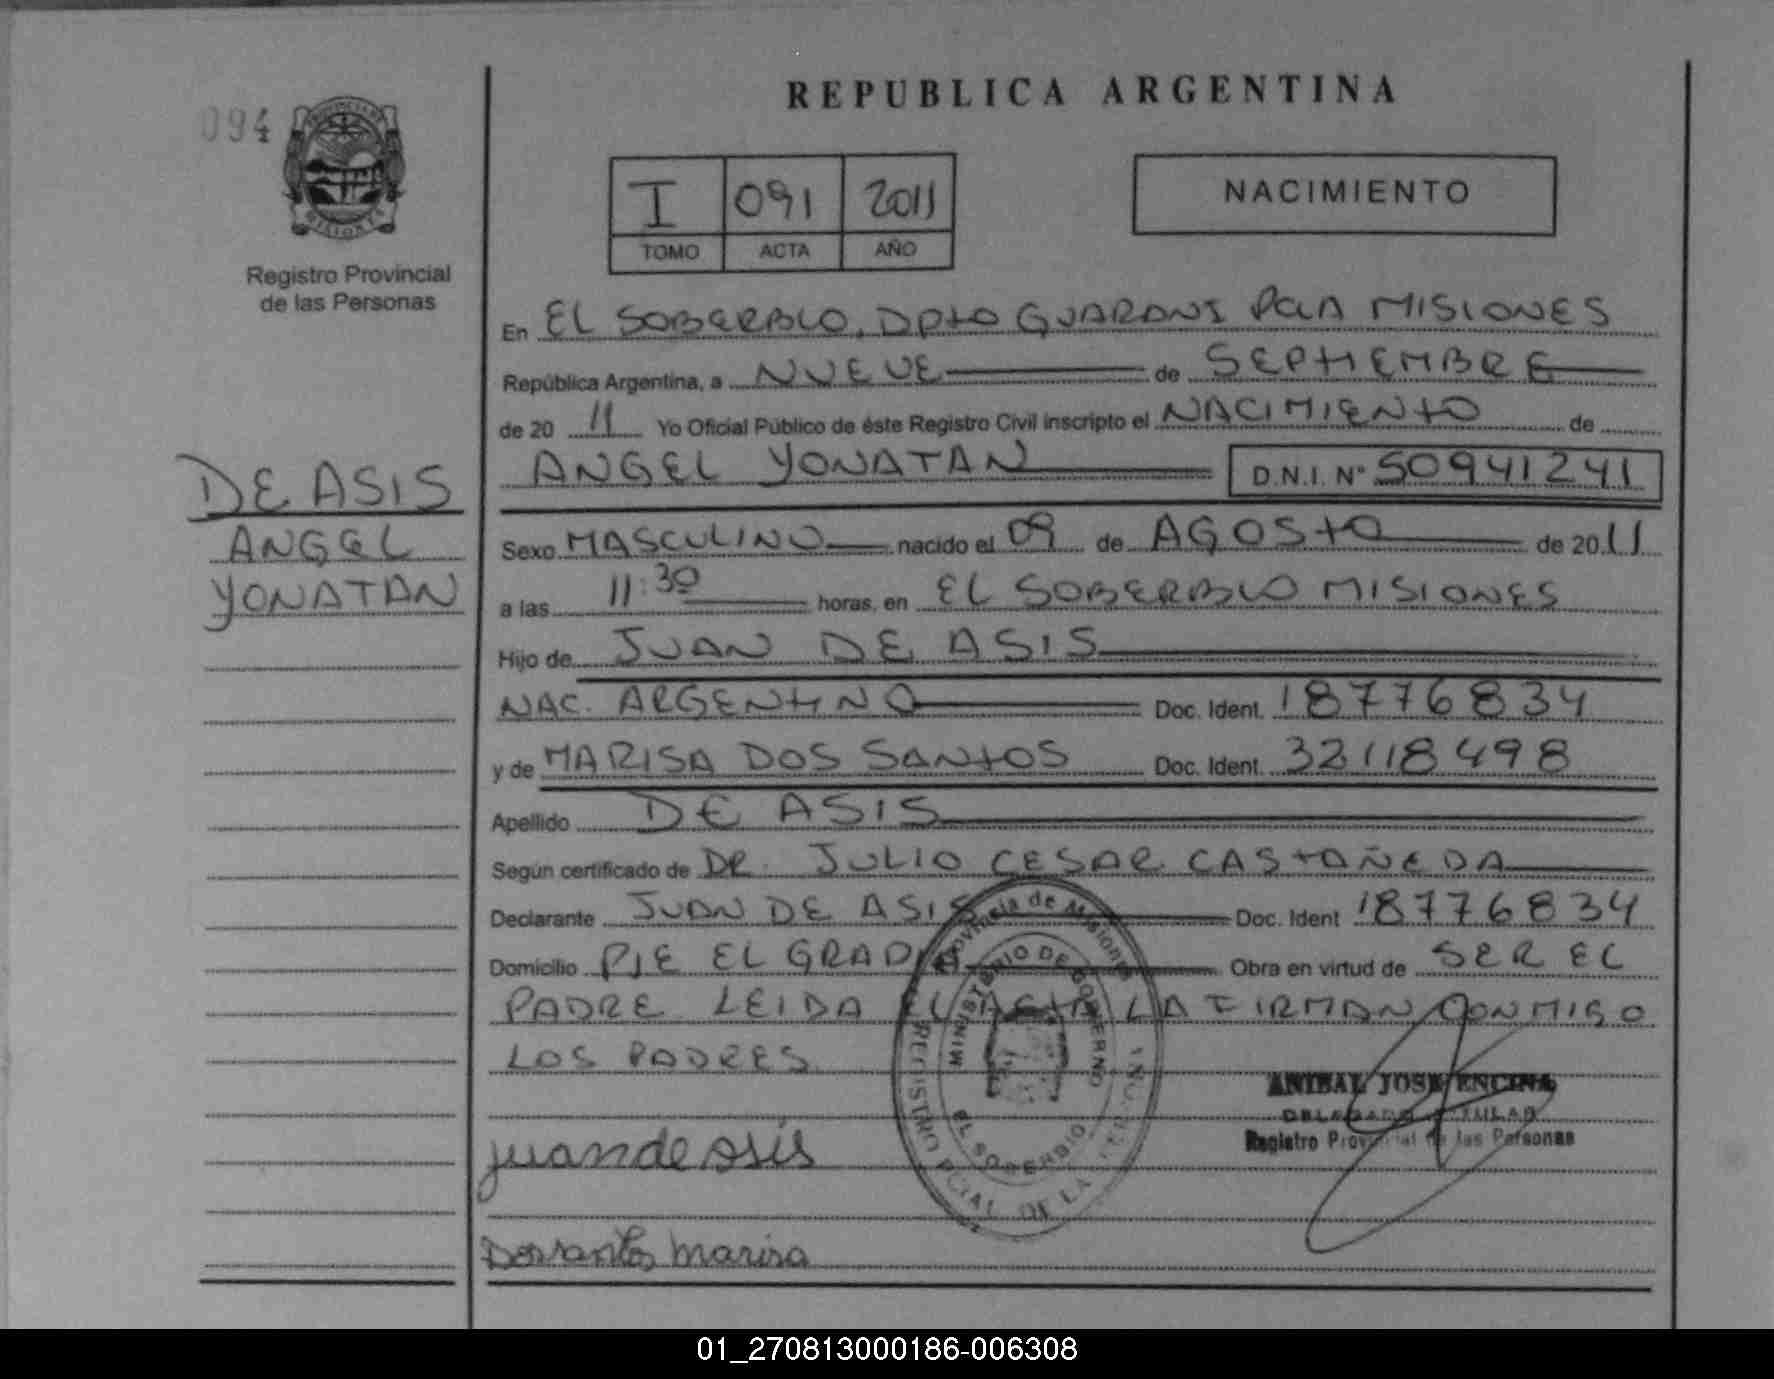 REPUBLICA ARGENTINA
094
I 091 2011
TOMO ACTA AÑO
NACIMIENTO
Registro Provincial
de las Personas
En EL SOBERBIO, DPTO GUARANI PCIA MISIONES
República Argentina, a NUEVE de SEPTIEMBRE
de 20 11 Yo Oficial Público de éste Registro Civil inscripto el NACIMIENTO de
ANGEL YONATAN D.N.I. Nº 50941241
DE ASIS
ANGEL
YONATAN
Sexo MASCULINO nacido el 09 de AGOSTO de 20 11
a las 11:30 horas, en EL SOBERBIO MISIONES
Hijo de JUAN DE ASIS
NAC. ARGENTINO Doc. Ident. 18776834
y de MARISA DOS SANTOS Doc. Ident. 32118498
Apellido DE ASIS
Según certificado de DR. JULIO CESAR CASTAÑEDA
Declarante JUAN DE ASIS Doc. Ident 18776834
Domicilio PJE EL GRADIN Obra en virtud de SER EL
PADRE LEIDA EL ACTA LA FIRMAN CONMIGO
LOS PADRES
Provincia de Misiones
MINISTERIO DE GOBERNO
EL SOBERBIO
REGISTRO PCIAL DE LA
ANIBAL JOSE ENCINA
DELEGADO TITULAR
Registro Provincial de las Personas
juan de asis
Dos santos marisa
01_270813000186-006308